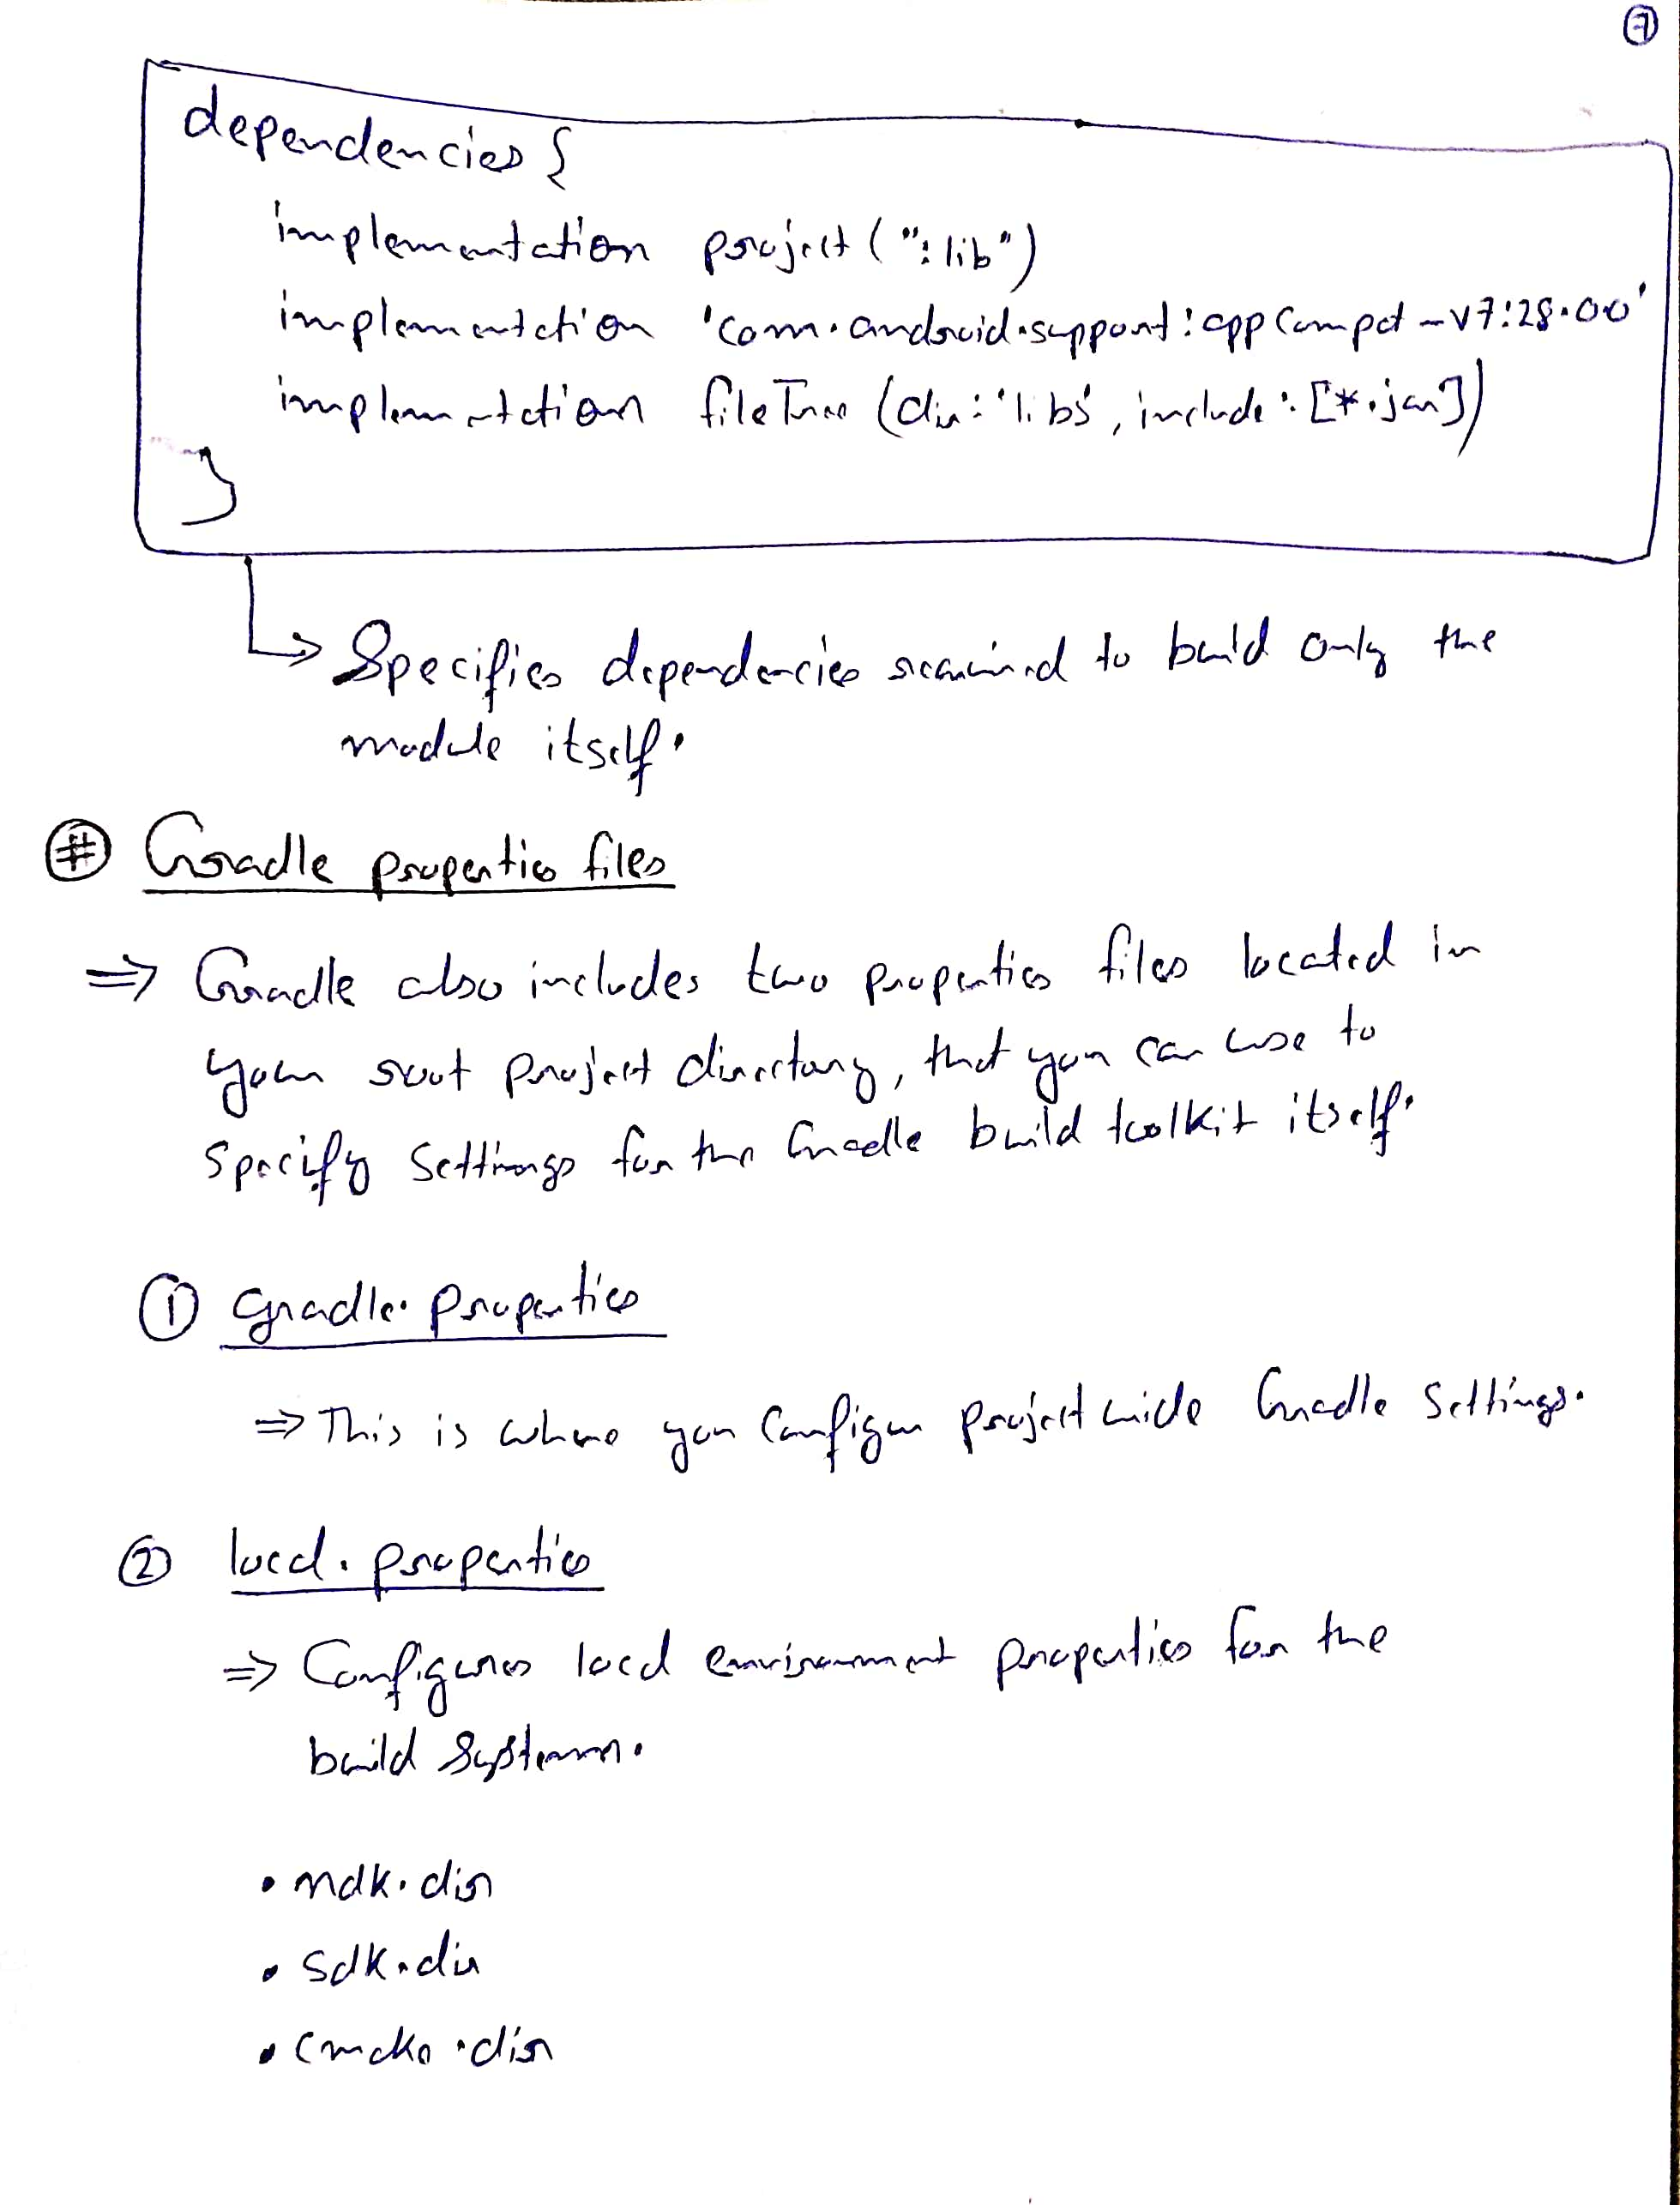 7
dependencies {
implementation project (":lib")
implementation 'com.android.support:appCompat-v7:28.0.0'
implementation fileTree (dir: 'libs', include: [*.jar])
}
Specifies dependencies required to build only the
module itself.
# Gradle properties files
⇒ Gradle also includes two properties files located in
your root project directory, that you can use to
specify settings for the Gradle build toolkit itself.
① gradle.properties
⇒ This is where you configure project wide Gradle settings.
② local.properties
⇒ Configures local environment properties for the
build system.
• ndk.dir
• sdk.dir
• cmake.dir